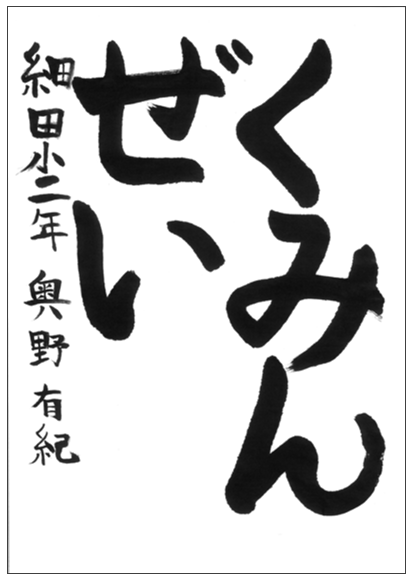 くみん
ぜい
細田小二年 奥野有紀